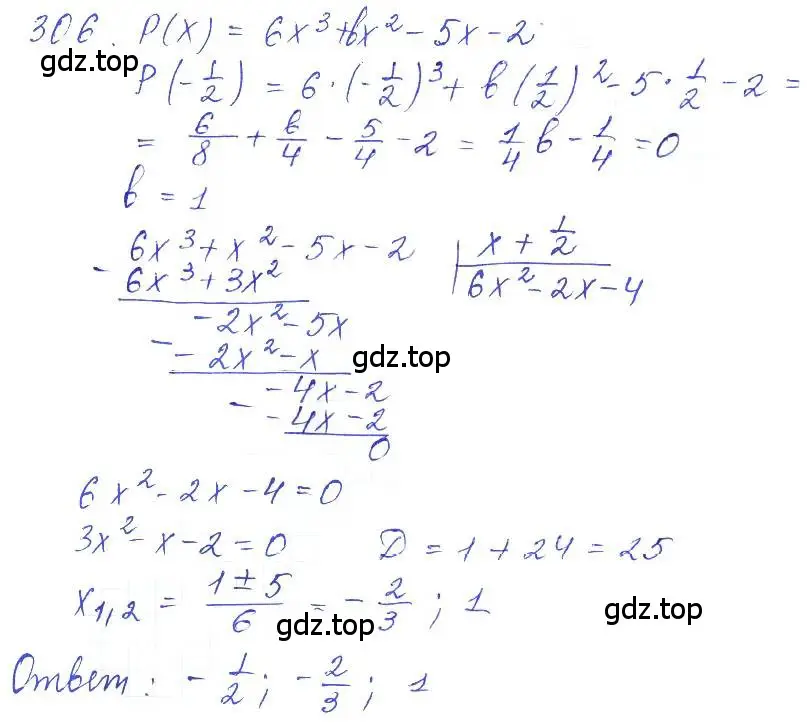 306. P(x) = 6x³+вx²-5x-2
gdz.top
P(-1/2) = 6·(-1/2)³+ в(1/2)²-5·1/2-2=
= 6/8 + в/4 - 5/4 -2 = 1/4 в - 1/4 =0
в = 1
6x³+x²-5x-2 | x + 1/2
- 6x³+3x² | 6x²-2x-4
-2x²-5x
- -2x²-x
gdz.top
-4x-2
- -4x-2
0
6x²-2x-4=0
3x²-x-2=0 D = 1+24=25
x1,2 = (1±5)/6 = -2/3 ; 1
gdz.top gdz.top
Ответ: -1/2; -2/3; 1